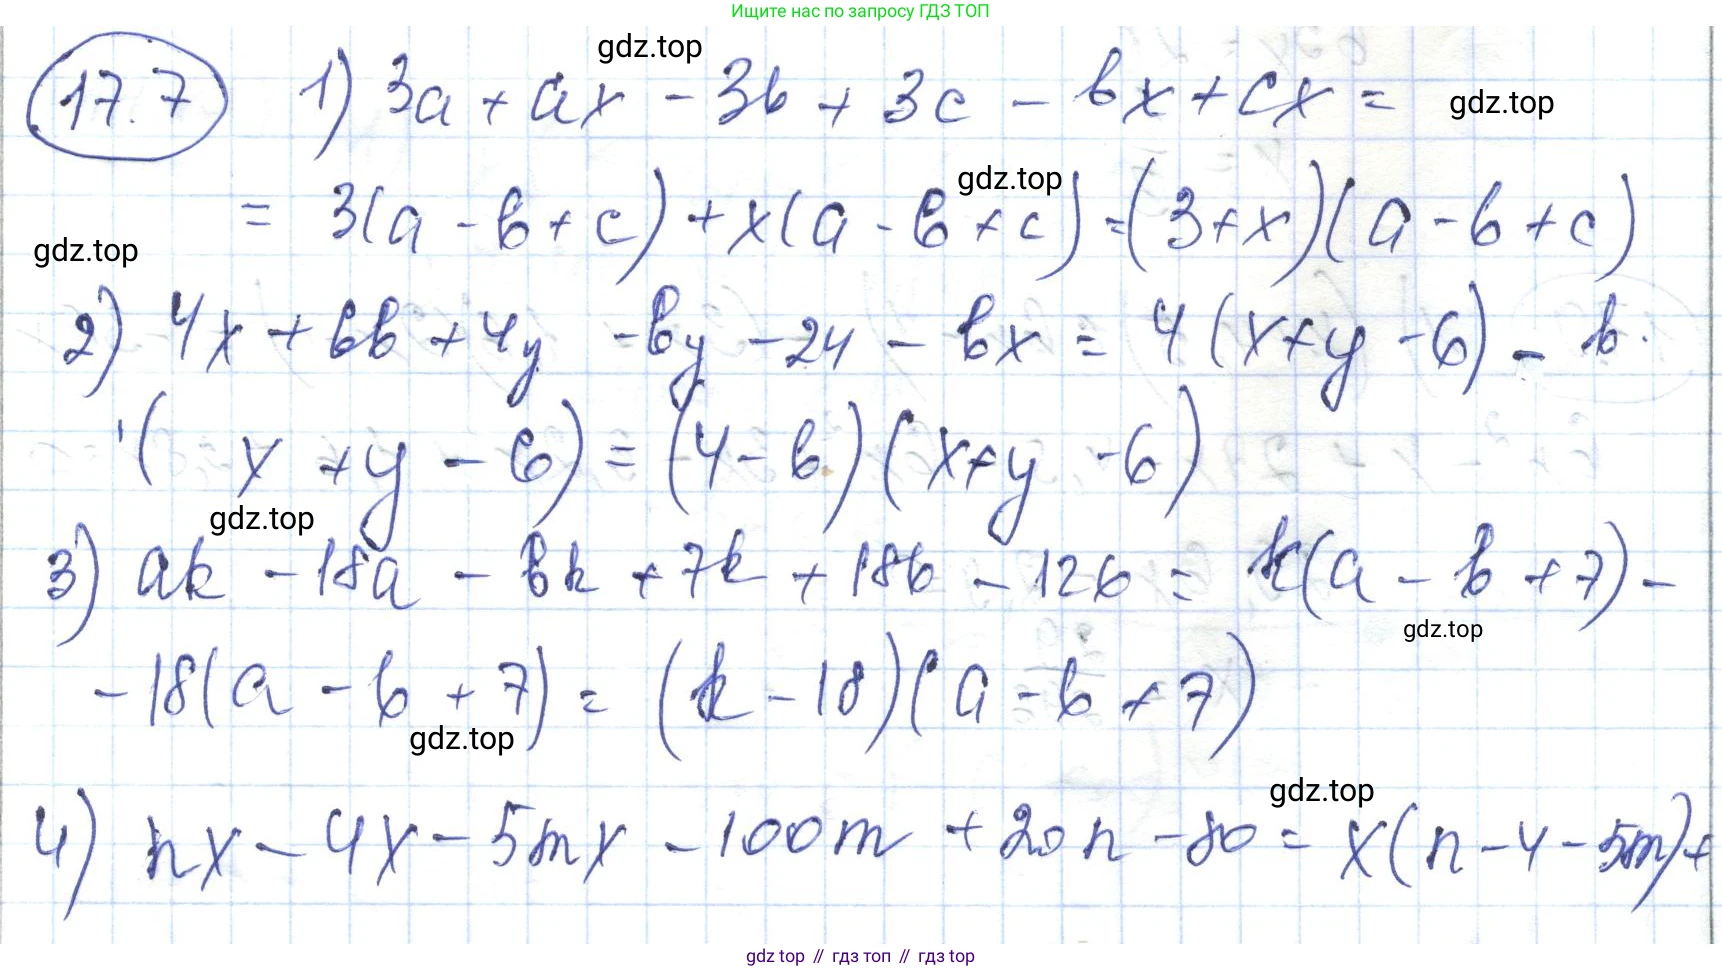 Ищите нас по запросу ГДЗ ТОП
gdz.top
17.7 1) 3a + ax - 3b + 3c - bx + cx =
gdz.top
gdz.top
= 3(a - b + c) + x(a - b + c) = (3 + x)(a - b + c)
gdz.top
2) 4x + 6b + 4y - by - 24 - bx = 4(x + y - 6) - b ·
· (x + y - 6) = (4 - b)(x + y - 6)
gdz.top
3) ak - 18a - bk + 7k + 18b - 126 = k(a - b + 7) -
gdz.top
- 18(a - b + 7) = (k - 18)(a - b + 7)
gdz.top
gdz.top
4) nx - 4x - 5mx - 100m + 20n - 80 = x(n - 4 - 5m) +
gdz top // гдз топ // gdz top